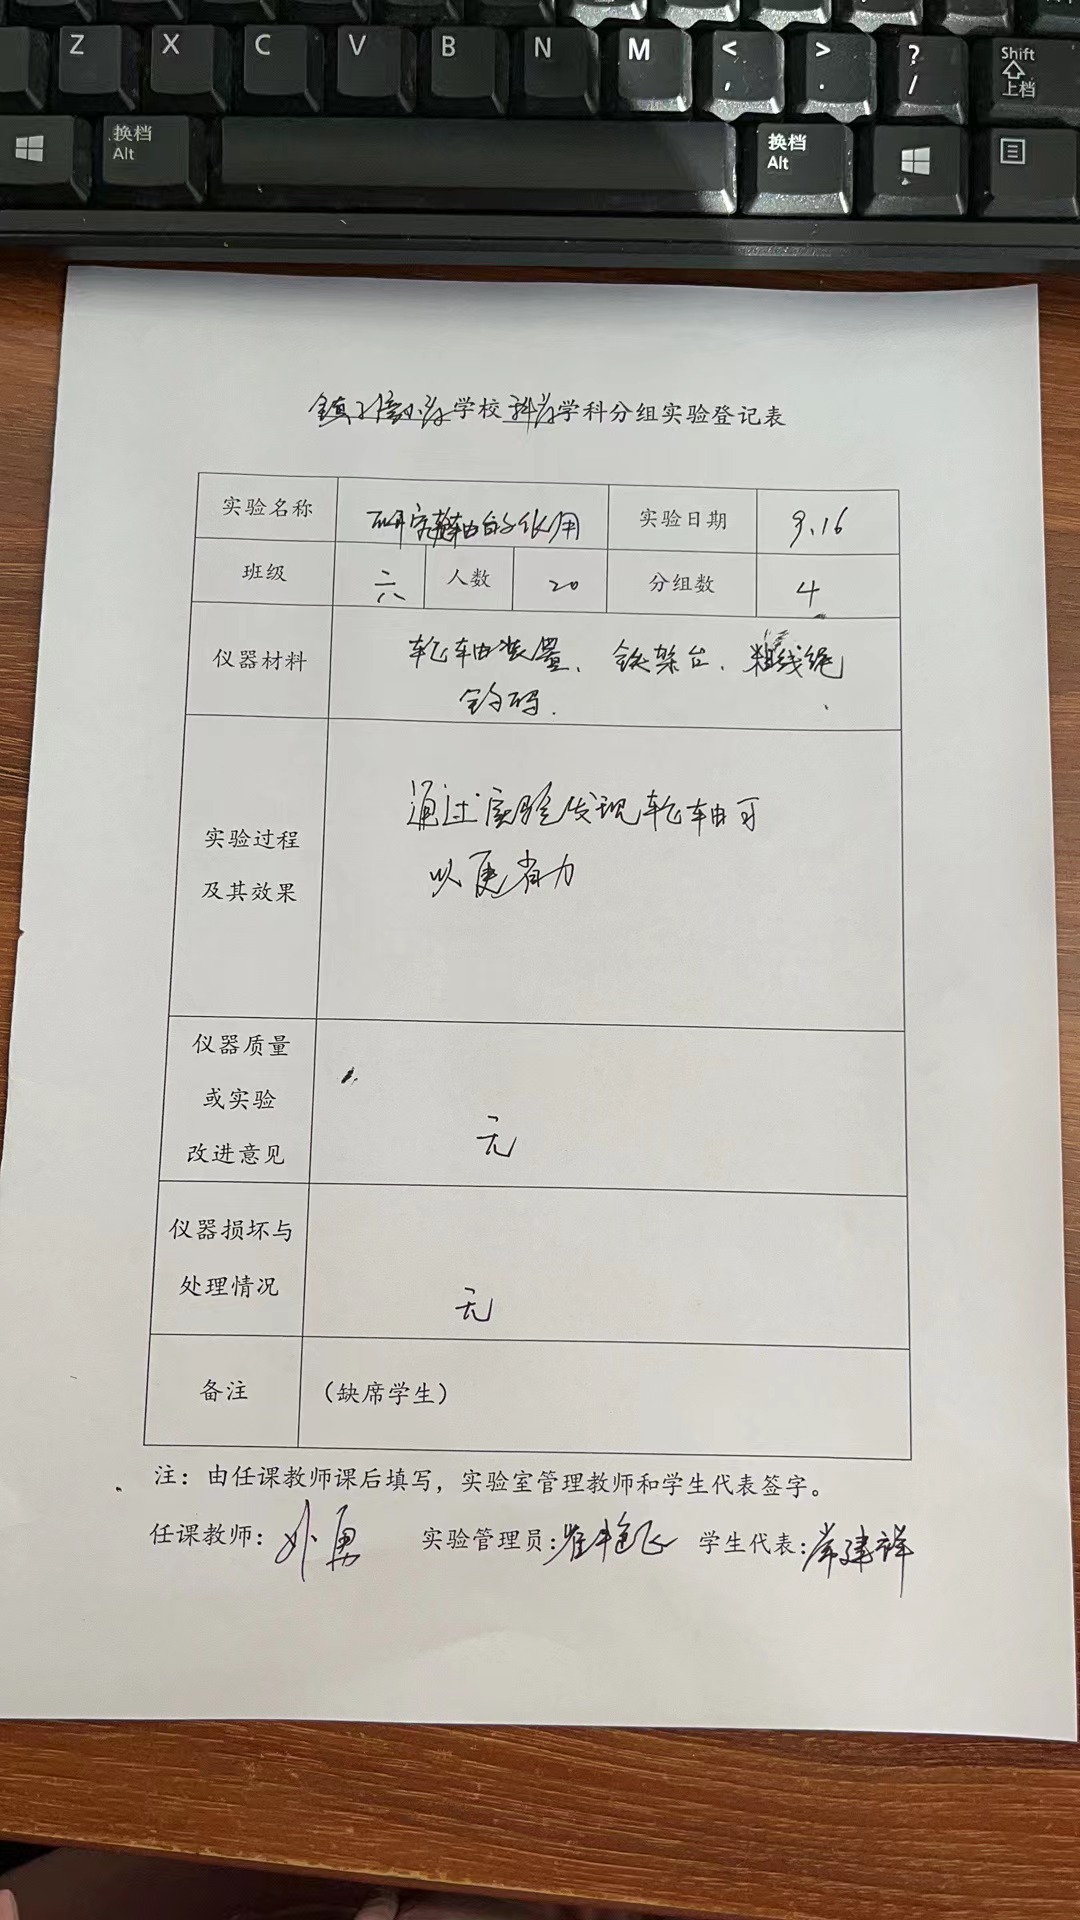 Z X C V B N M < , > . ? / Shift 上档
换档 Alt 换档 Alt
学校科学学科分组实验登记表
实验名称 研究轮轴的作用 实验日期 9.16
班级 六 人数 20 分组数 4
仪器材料 轮轴装置、铁架台、粗线绳
钩码.
实验过程
及其效果
通过实验发现轮轴可
以更省力
仪器质量
或实验
改进意见
无
仪器损坏与
处理情况
无
备注 （缺席学生）
注：由任课教师课后填写，实验室管理教师和学生代表签字。
任课教师: 实验管理员: 学生代表: 常建祥